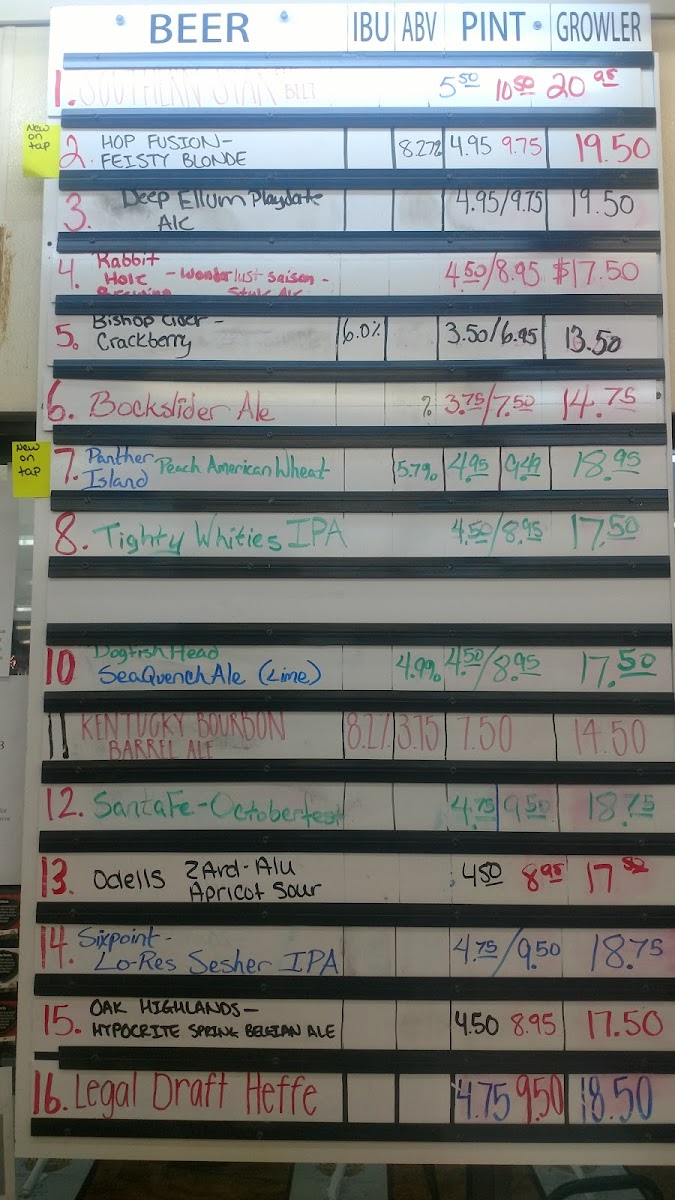 BEER IBU ABV PINT GROWLER
1. SOUTHERN STAR BELT 5.50 10.50 20.95
New on tap
2. HOP FUSION- FEISTY BLONDE 8.27% 4.95 9.75 19.50
3. Deep Ellum Playdate Ale 4.95/9.75 19.50
4. Rabbit Hole Brewing - Wonderlust Saison - Style Ale 4.50/8.95 $17.50
5. Bishop Cider - Crackberry 6.0% 3.50/6.95 13.50
6. Bockslider Ale % 3.75/7.50 14.75
New on tap
7. Panther Island Peach American Wheat 5.7% 4.95 9.49 18.95
8. Tighty Whities IPA 4.50/8.95 17.50
10 Dogfish Head SeaQuench Ale (Lime) 4.9% 4.50/8.95 17.50
11 KENTUCKY BOURBON BARREL ALE 8.2% 3.75 7.50 14.50
12. SantaFe-Octoberfest 4.75 9.50 18.75
13. Odells ZArd-Alu Apricot Sour 4.50 8.95 17.50
14. Sixpoint- Lo-Res Sesher IPA 4.75/9.50 18.75
15. OAK HIGHLANDS- HYPOCRITE SPRING BELGIAN ALE 4.50 8.95 17.50
16. Legal Draft Heffe 4.75 9.50 18.50